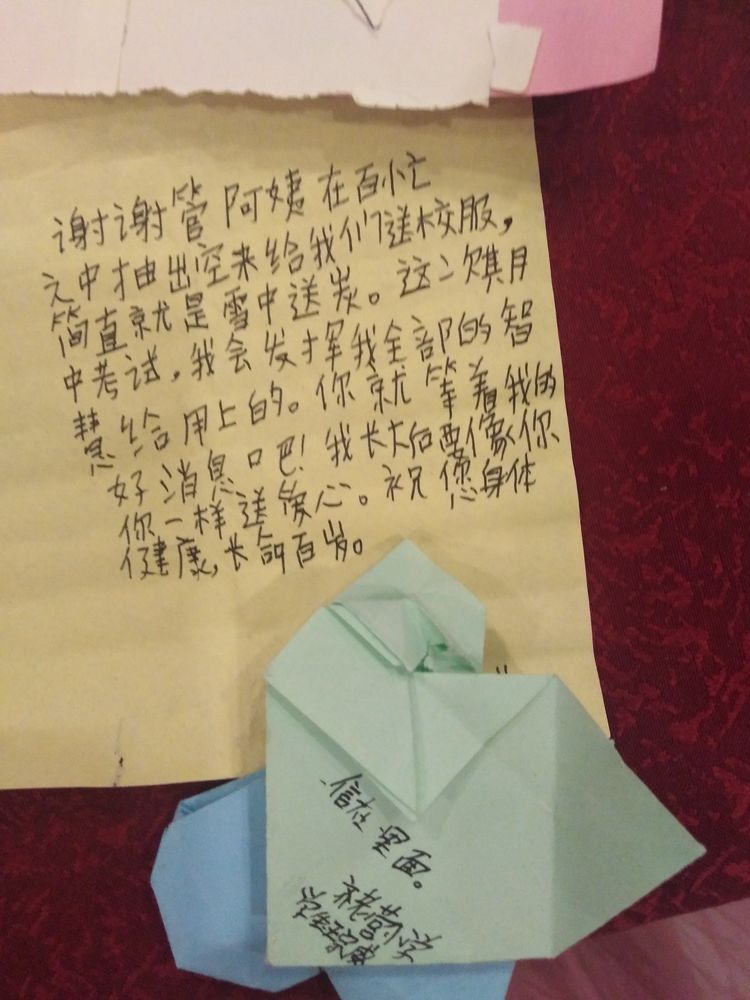 谢谢管阿姨在百忙
之中抽出空来给我们送校服，
简直就是雪中送炭。这次期
中考试，我会发挥我全部的智
慧给用上的。你就等着我的
好消息吧！我长大后要像你
你一样送爱心。祝您身体
健康，长命百岁。
信在里面。
学生